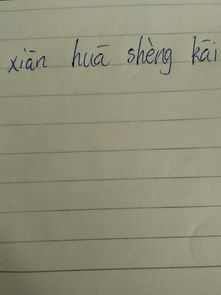 xiān huā shèng kāi